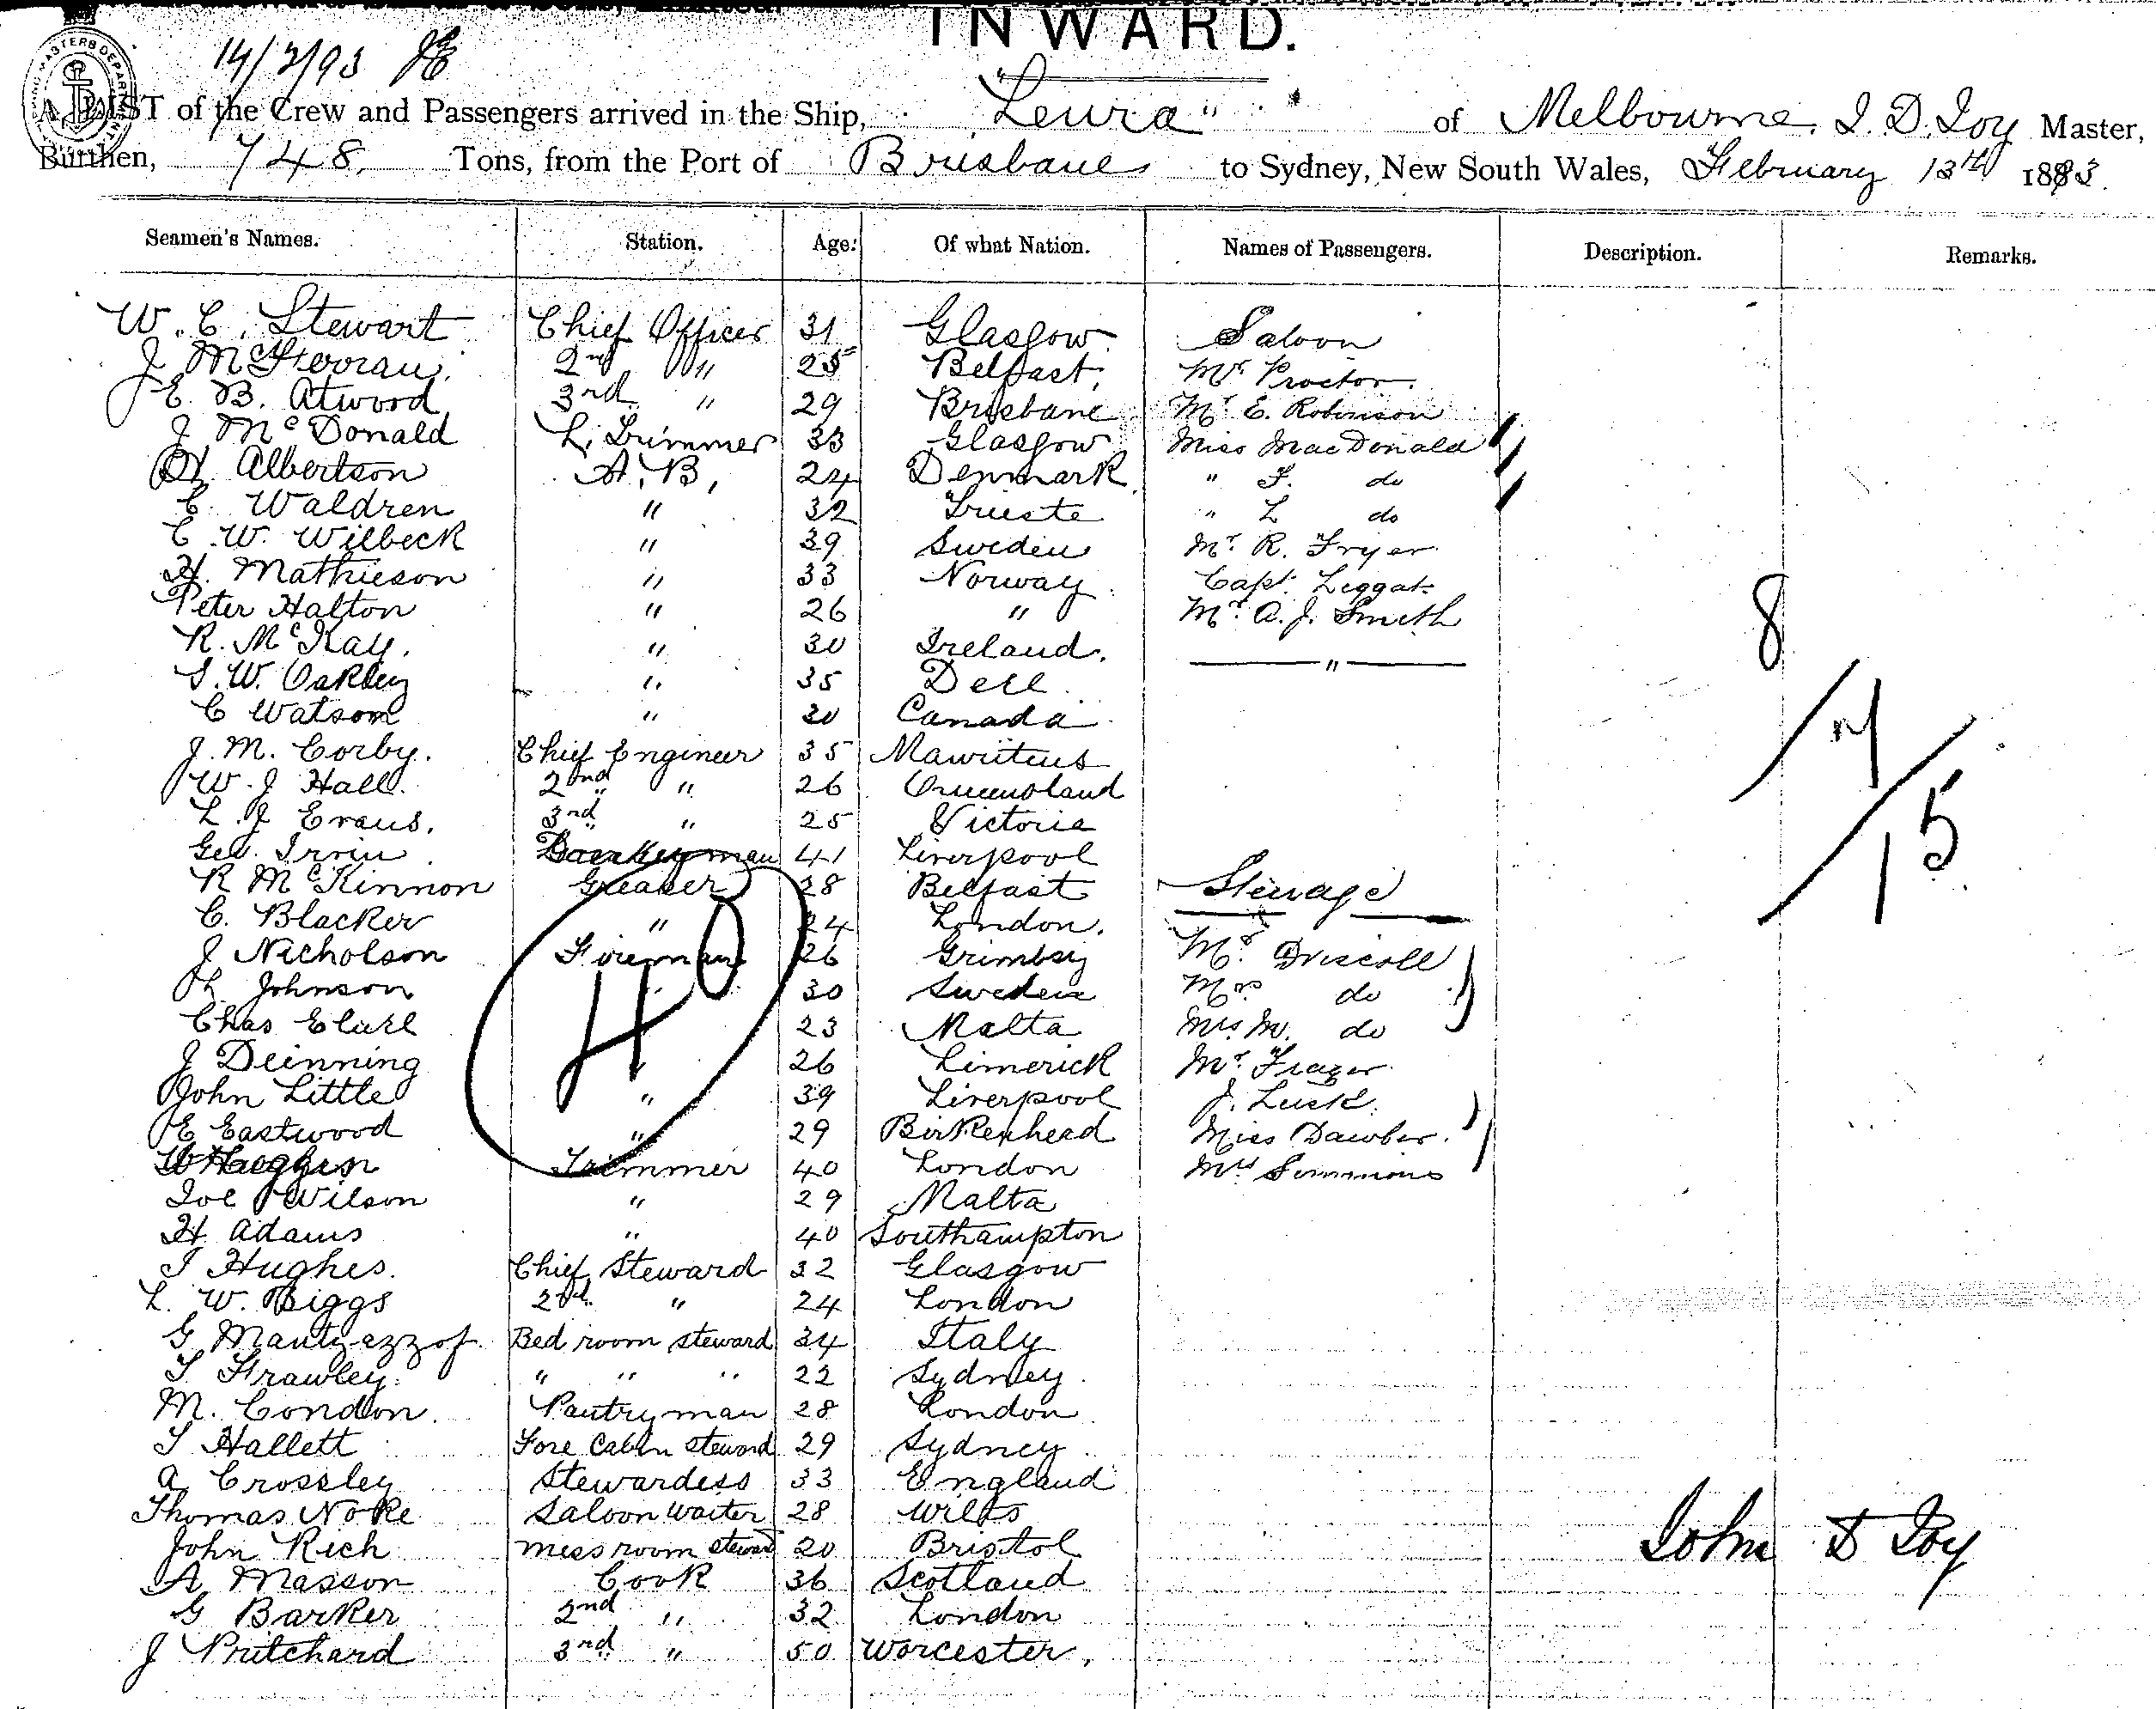 INWARD.
14/2/93
A LIST of the Crew and Passengers arrived in the Ship, "Leura" of Melbourne, J. D. Joy Master,
Burthen, 748 Tons, from the Port of Brisbane to Sydney, New South Wales, February 13th 1893.
Seamen's Names. Station. Age. Of what Nation. Names of Passengers. Description. Remarks.
W. C. Stewart Chief Officer 31 Glasgow Saloon
J McFerran 2nd " 25 Belfast Mr Proctor
E. B. Atwood 3rd " 29 Brisbane Mr E. Robinson
J McDonald L. Trimmer 33 Glasgow Miss MacDonald
Albertson A. B, 24 Denmark " F. do
C. Waldren " 32 Trieste " L do
C. W. Wilbeck " 39 Sweden Mr. R. Fryer
H. Mathieson " 33 Norway Capt. Leggat
Peter Halton " 26 " Mr. A. J. Smith
R. McKay. " 30 Ireland. "
S. W. Oakley " 35 Deal
C Watson " 30 Canada
J. M. Corby. Chief Engineer 35 Mauritius
W. J Hall. 2nd " 26 Queensland
L. J Evans. 3rd " 25 Victoria
Geo. Irvin Donkeyman 41 Liverpool
R McKinnon Greaser 28 Belfast Steerage
C. Blacker " 24 London.
J Nicholson Fireman 26 Grimsby Mr. Driscoll
Johnson 30 Sweden Mrs do
Chas 23 Malta Ms. M. do
J Deinning 26 Limerick Mr. Frazer
John Little " 39 Liverpool J. Lusk.
E Eastwood " 29 Birkenhead Miss Dawber.
W Huggin Trimmer 40 London Mrs Simmons
Joe Wilson " 29 Malta
H. Adams " 40 Southampton
T Hughes. Chief Steward 32 Glasgow
L. W. Biggs 2nd " 24 London
G Bed room steward 34 Italy
T Frawley. " " " 22 Sydney
M. Condon. Pantryman 28 London
T Hallett Fore Cabin steward 29 Sydney
A. Crossley Stewardess 33 England
Thomas Noke Saloon Waiter 28 Wilts
John Rich messroom steward 20 Bristol
A Masson Cook 36 Scotland
G Barker 2nd " 32 London
J Pritchard 3rd " 50 Worcester.
40
8
/7
/15
John D Joy